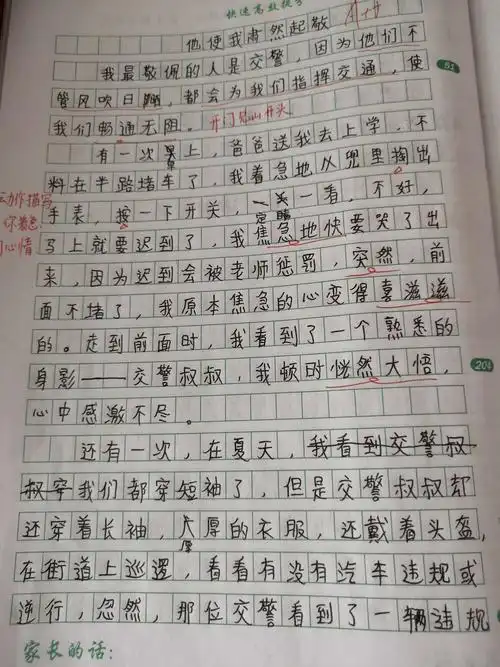 快速高效提分
他使我肃然起敬
我最敬佩的人是交警，因为他们不
管风吹日晒，都会为我们指挥交通，使
51
我们畅通无阻。开门见山开头
有一次早上，爸爸送我去上学，不
料在半路堵车了，我着急地从兜里掏出
动作描写
手表，按一下开关，定睛一看，不好，
你着急
心情
马上就要迟到了，我焦急地快要哭了出
来，因为迟到会被老师惩罚，突然，前
面不堵了，我原本焦急的心变得喜滋滋
的。走到前面时，我看到了一个熟悉的
身影——交警叔叔，我顿时恍然大悟，
204
心中感激不尽。
还有一次，在夏天，我看到交警叔
叔穿我们都穿短袖了，但是交警叔叔却
还穿着长袖，厚厚的衣服，还戴着头盔，
在街道上巡逻，看看有没有汽车违规或
逆行，忽然，那位交警看到了一辆违规
家长的话：